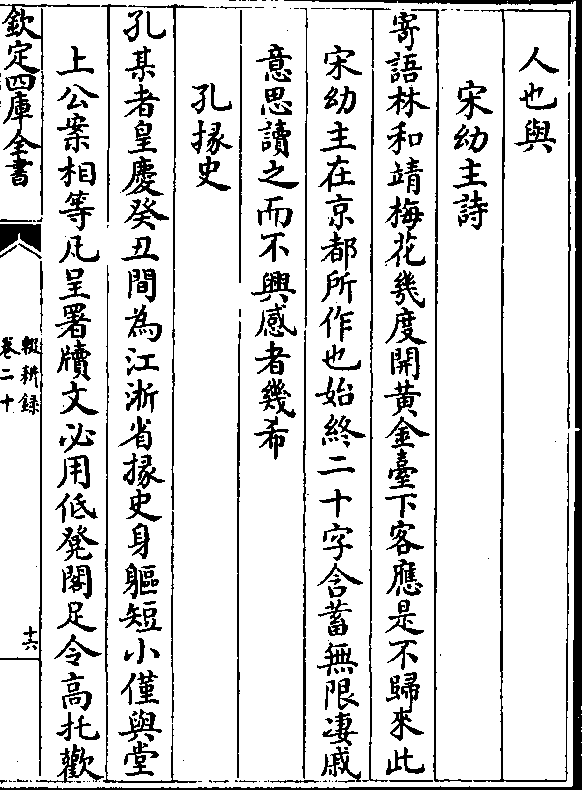 人也與
宋幼主詩
寄語林和靖梅花幾度開黃金臺下客應是不歸來此
宋幼主在京都所作也始終二十字含蓄無限凄戚
意思讀之而不興感者幾希
孔掾史
孔某者皇慶癸丑間為江浙省掾史身軀短小僅與堂
上公案相等凡呈署牘文必用低凳閣足令高扥歡
欽定四庫全書
輟耕録
卷二十
十六